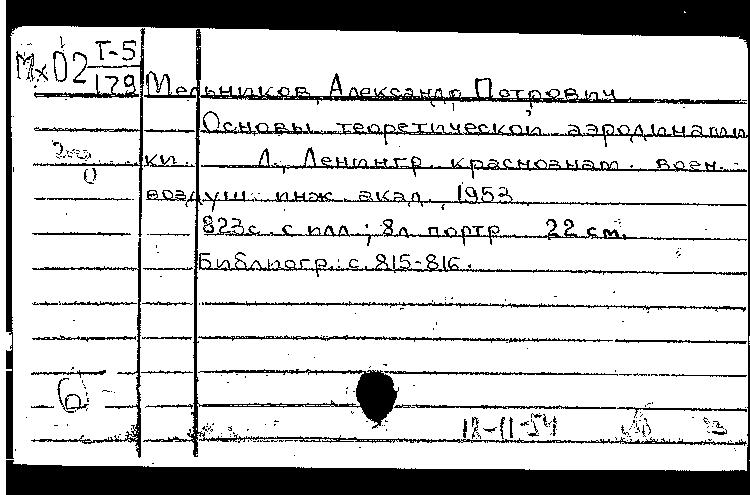 Мх02 Т-5
179
Мельников, Александр Петрович
Основы теоретической аэродинами
ки. Л., Ленингр. краснознам. воен.-
воздуш. инж. акад., 1953
823с. с илл; 8л. портр. 22 см.
Библиогр.: с. 815-816.
18-11-54